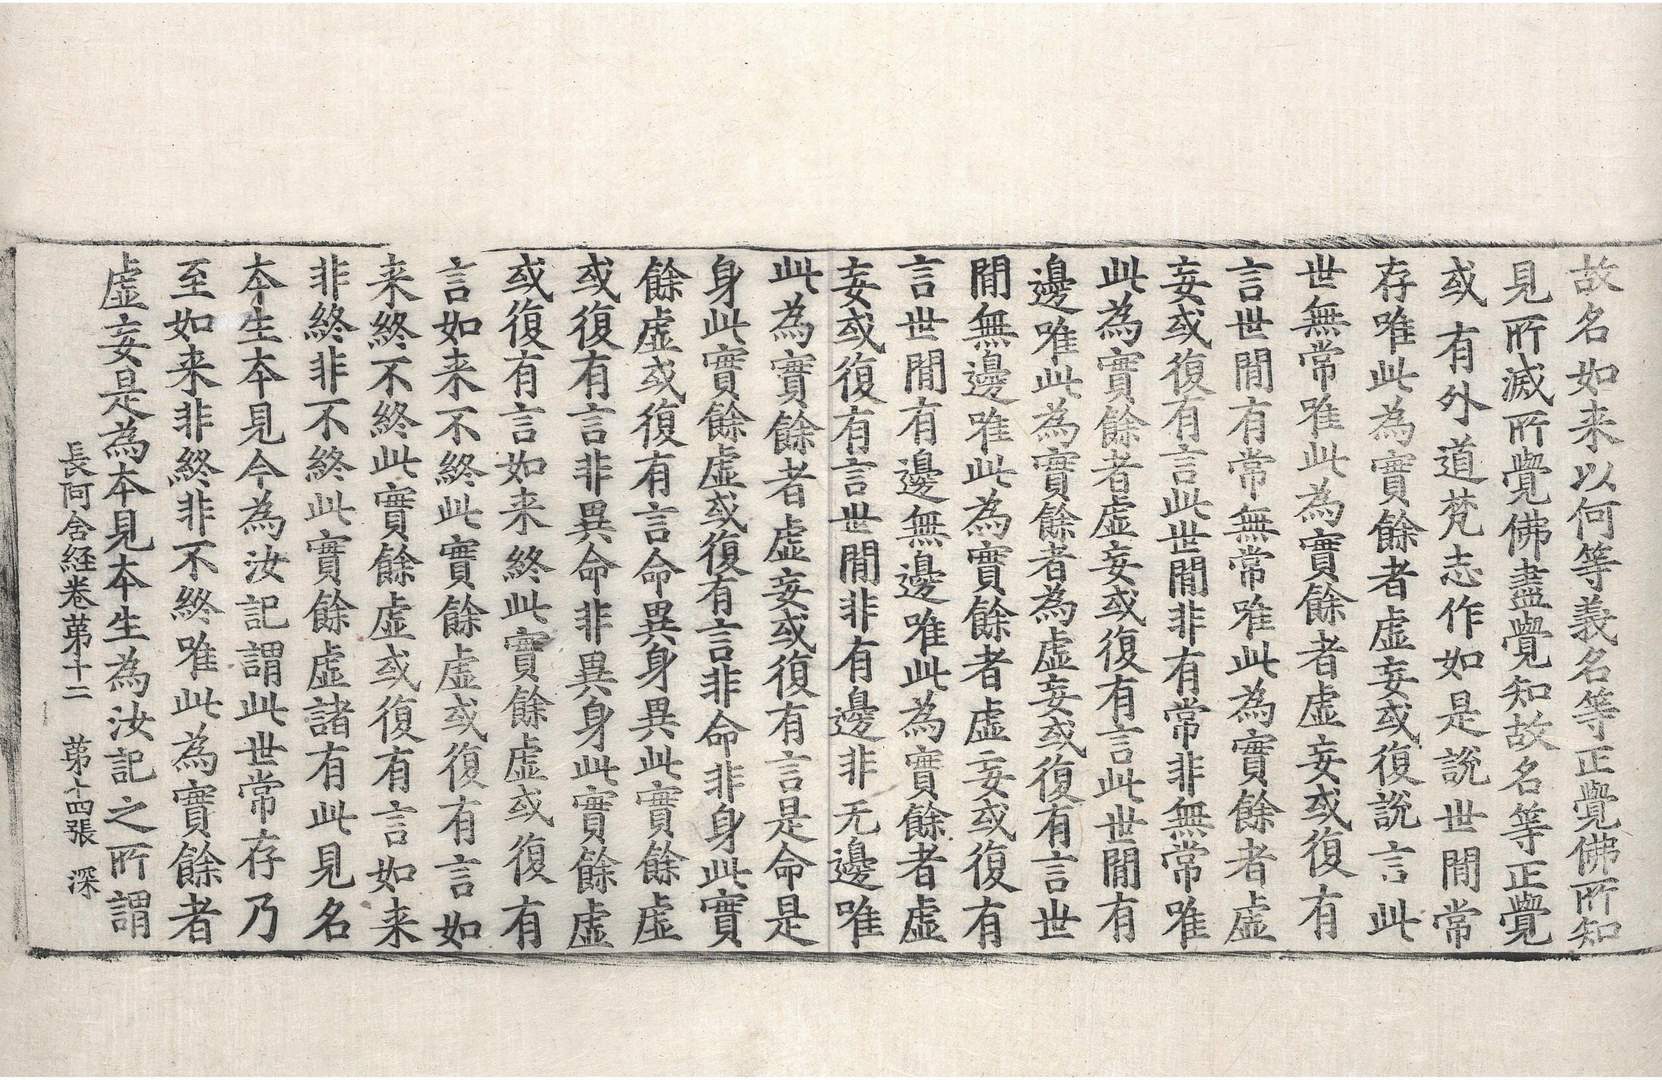 故名如来以何等義名等正覺佛所知
見所滅所覺佛盡覺知故名等正覺
或有外道梵志作如是說世間常
存唯此為實餘者虛妄或復說言此
世無常唯此為實餘者虛妄或復有
言世間有常無常唯此為實餘者虛
妄或復有言此世間非有常非無常唯
此為實餘者虛妄或復有言此世間有
邊唯此為實餘者為虛妄或復有言世
間無邊唯此為實餘者虛妄或復有
言世間有邊無邊唯此為實餘者虛
妄或復有言世間非有邊非无邊唯
此為實餘者虛妄或復有言是命是
身此實餘虛或復有言非命非身此實
餘虛或復有言命異身異此實餘虛
或復有言非異命非異身此實餘虛
或復有言如来終此實餘虛或復有
言如来不終此實餘虛或復有言如
来終不終此實餘虛或復有言如来
非終非不終此實餘虛諸有此見名
本生本見今為汝記謂此世常存乃
至如来非終非不終唯此為實餘者
虛妄是為本見本生為汝記之所謂
長阿含經卷苐十二 苐十四張 深